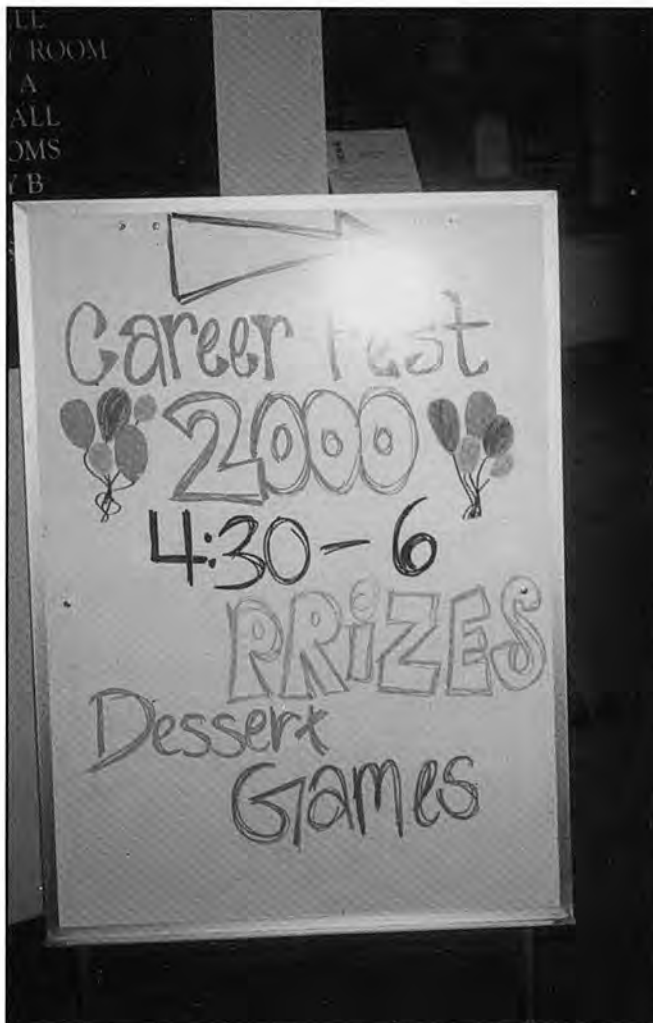 ROOM
A
B
Career Fest
2000
4:30 - 6
PRiZES
Dessert
Games